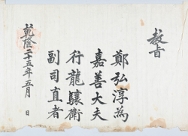 教旨
鄭弘淳為
嘉善大夫
行龍驤衛
副司直者
乾隆二十五年五月 日